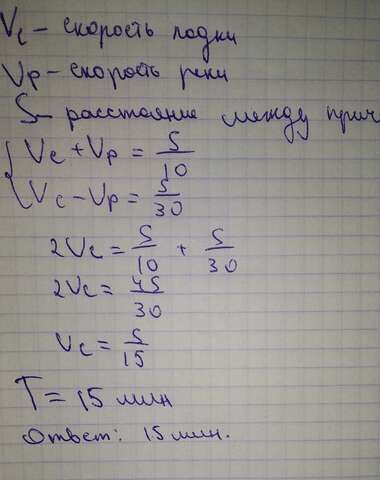 Vс - скорость лодки
Vр - скорость реки
S - расстояние между прич
{ Vс + Vр = S/10
Vс - Vр = S/30
2Vс = S/10 + S/30
2Vс = 4S/30
Vс = S/15
T = 15 мин
Ответ: 15 мин.